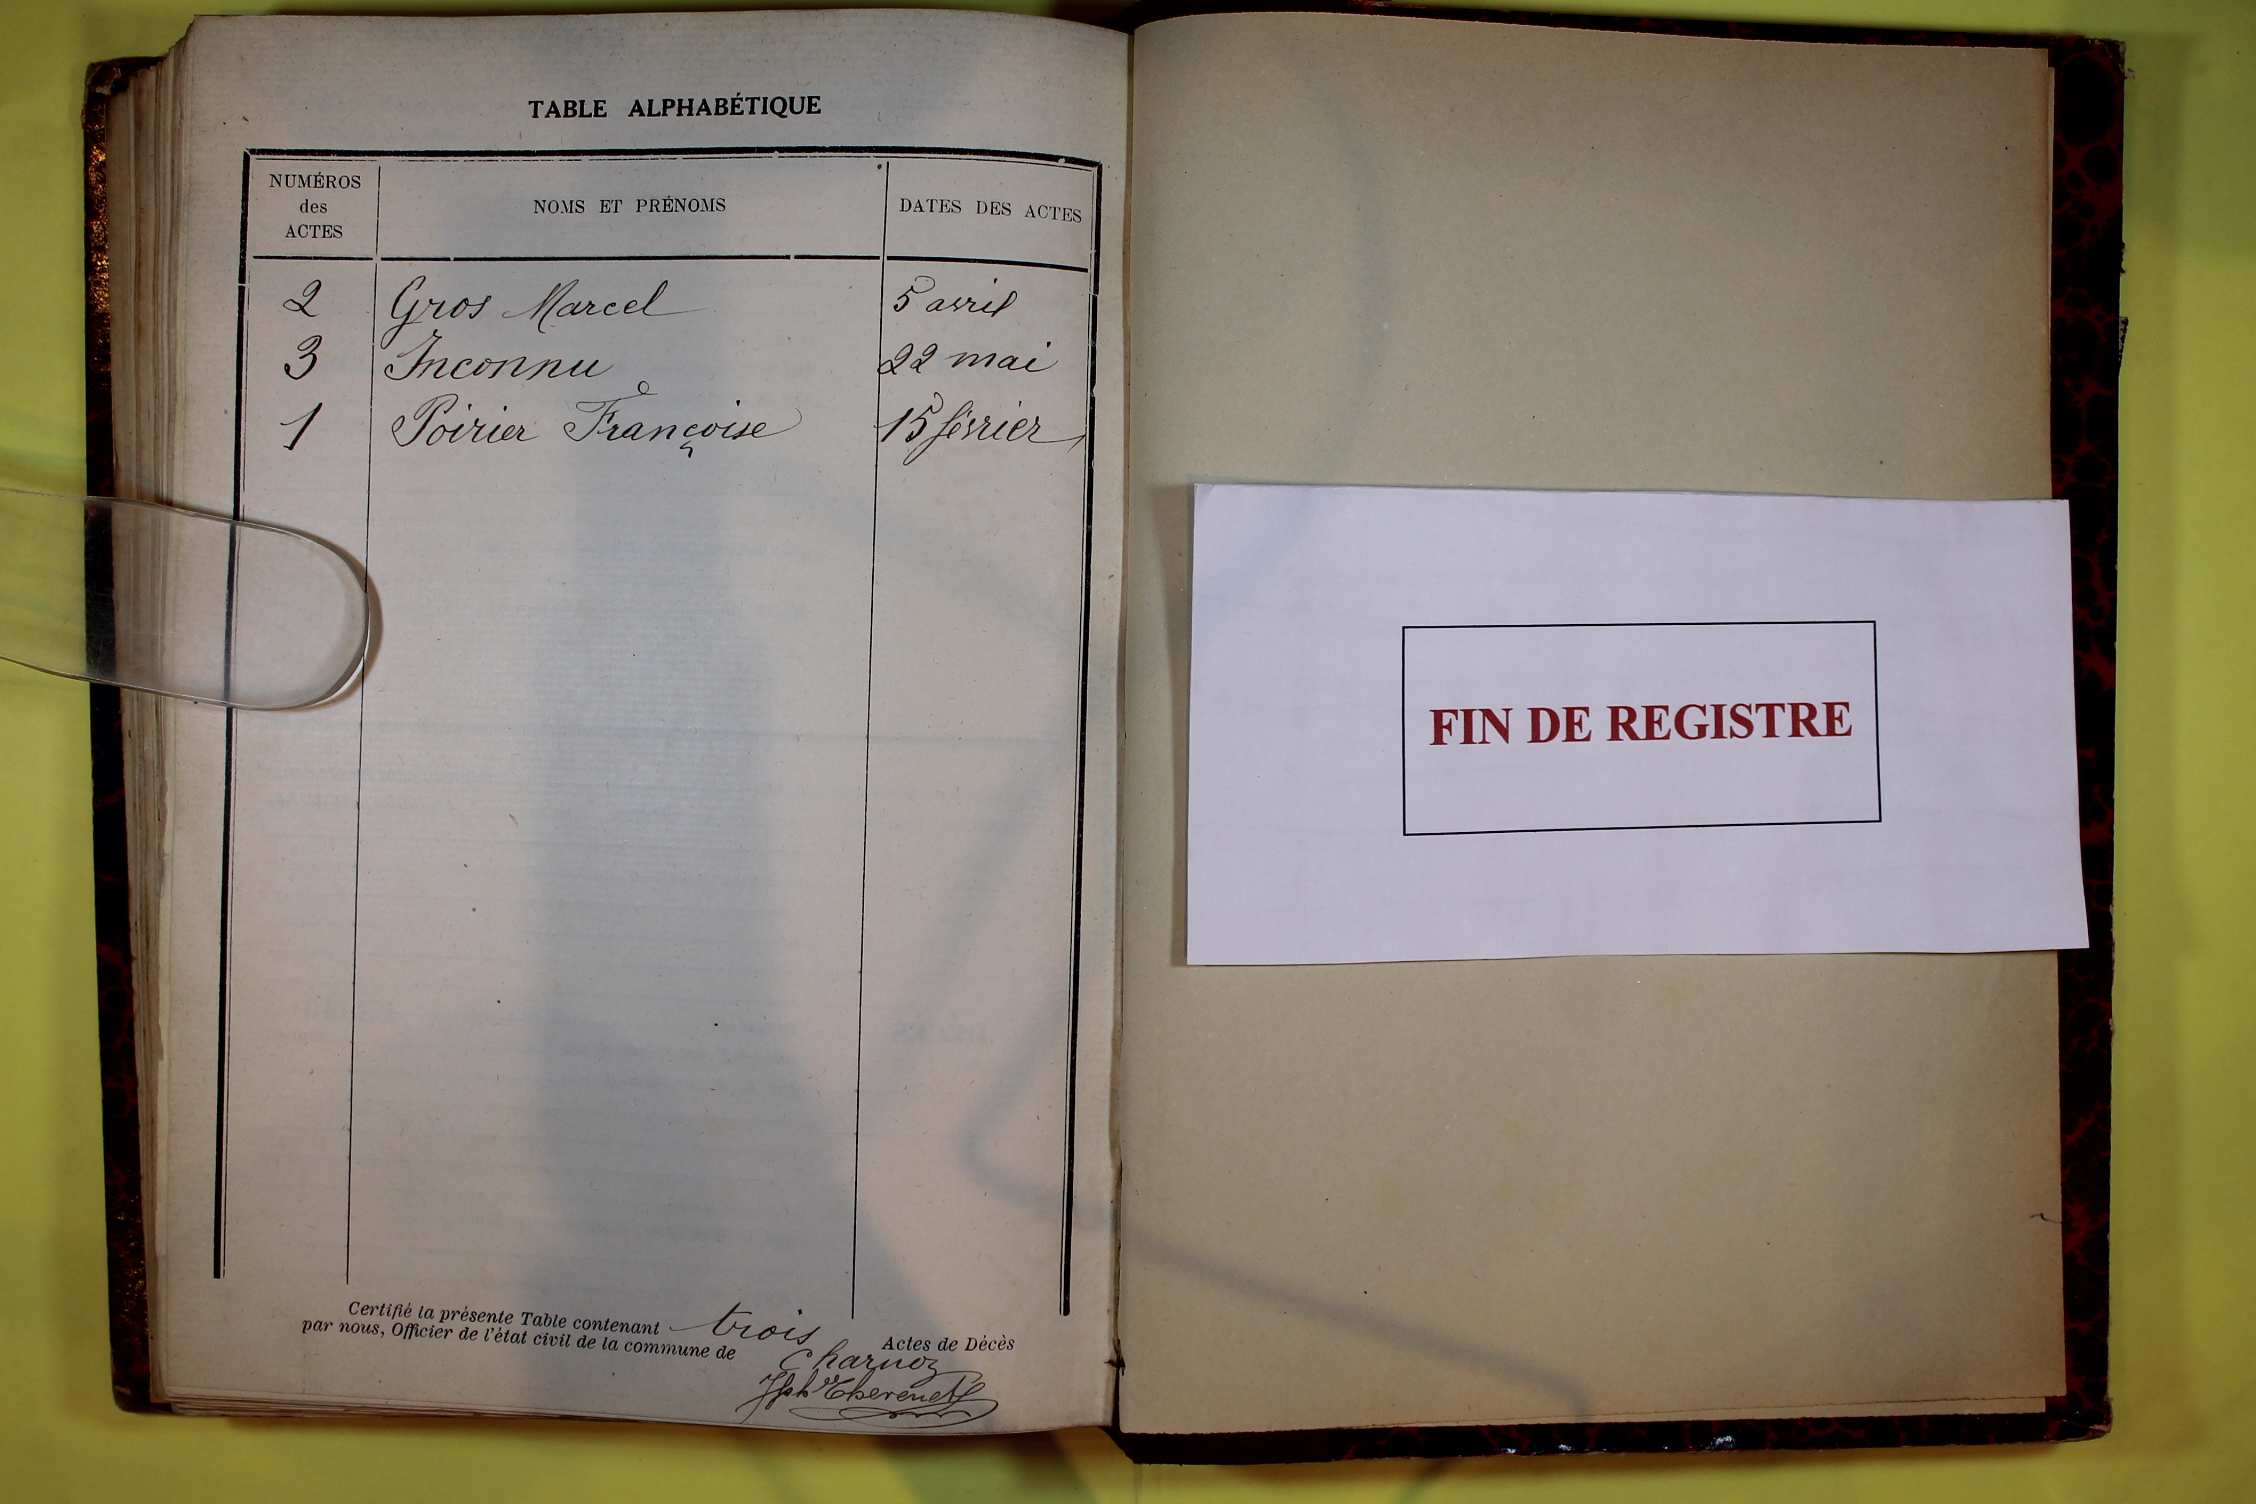 TABLE ALPHABÉTIQUE
NUMÉROS
des
ACTES
NOMS ET PRÉNOMS
DATES DES ACTES
2 Gros Marcel 5 avril
3 Inconnu 22 mai
1 Poirier Françoise 15 février
Certifié la présente Table contenant trois Actes de Décès
par nous, Officier de l'état civil de la commune de Charnoz
FIN DE REGISTRE